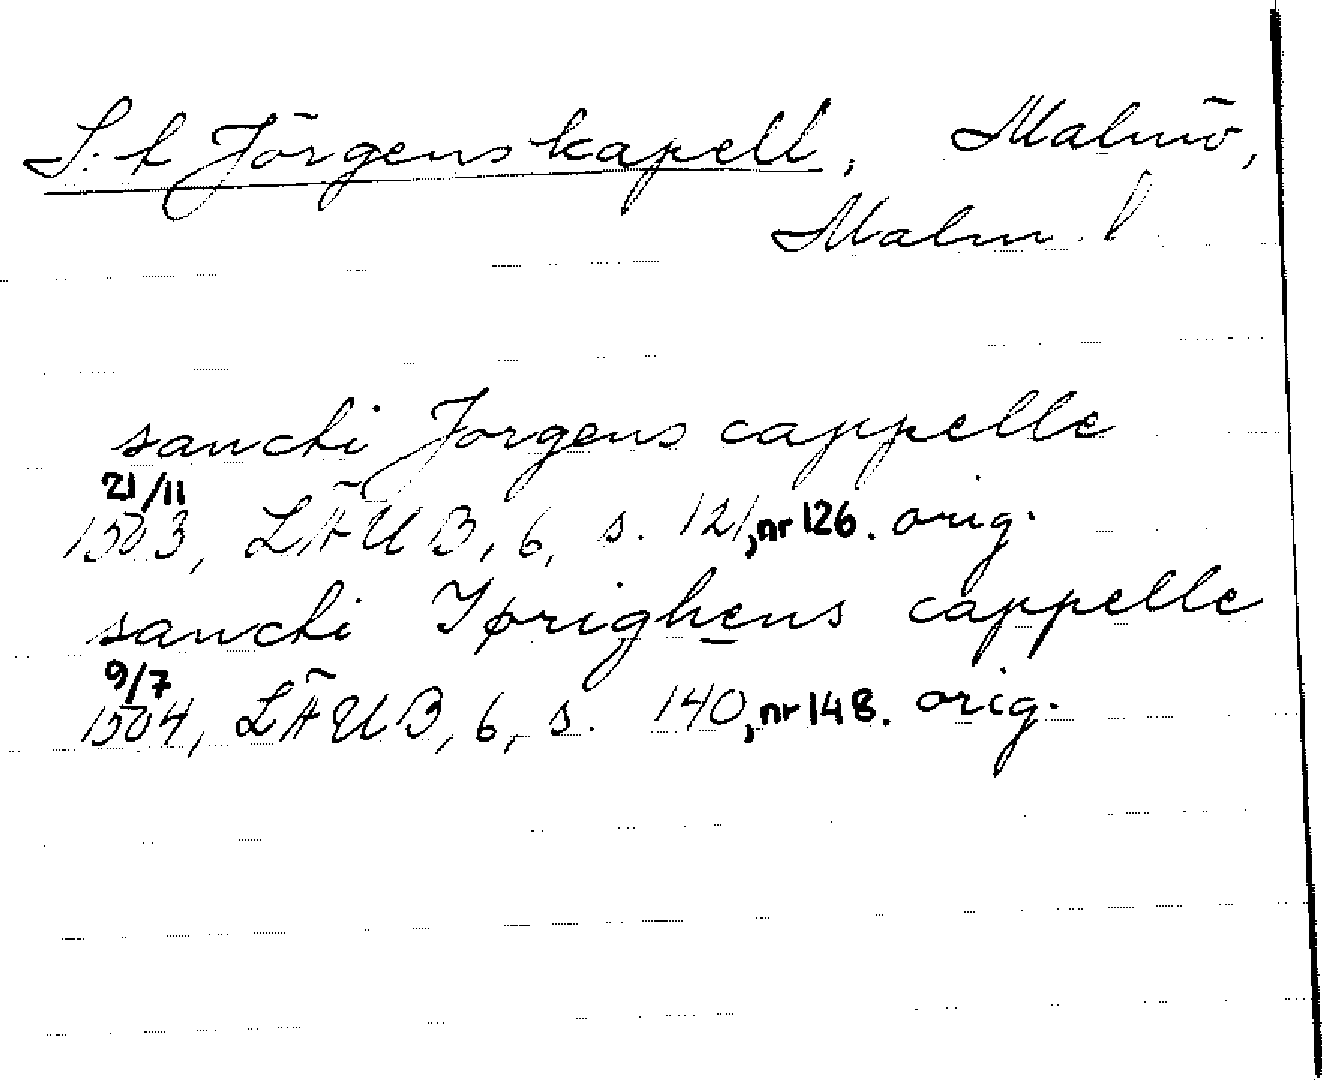 S:t Jörgens kapell, Malmö,
Malm. l
sancti Jorgens cappelle
21/11
1503, LÄUB, 6, s. 121, nr 126. orig.
sancti Jørighens cappelle
9/7
1504, LÄUB, 6, s. 140, nr 148. orig.